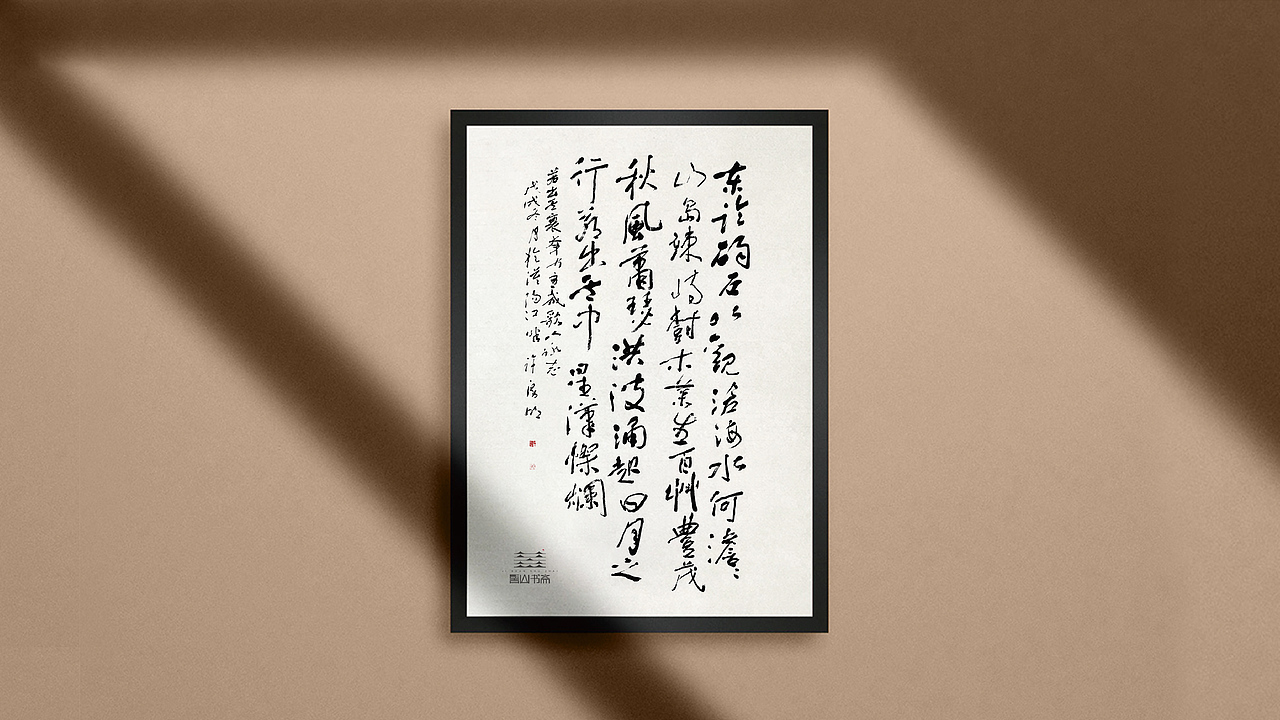 东临碣石以觀滄海水何澹〻
山島竦峙樹木叢生百艸豐茂
秋風蕭瑟洪波涌起日月之
行若出其中星漢燦爛
若出其裏幸甚至哉歌以詠志
戊戌冬月於潯陽江畔許
山书斋